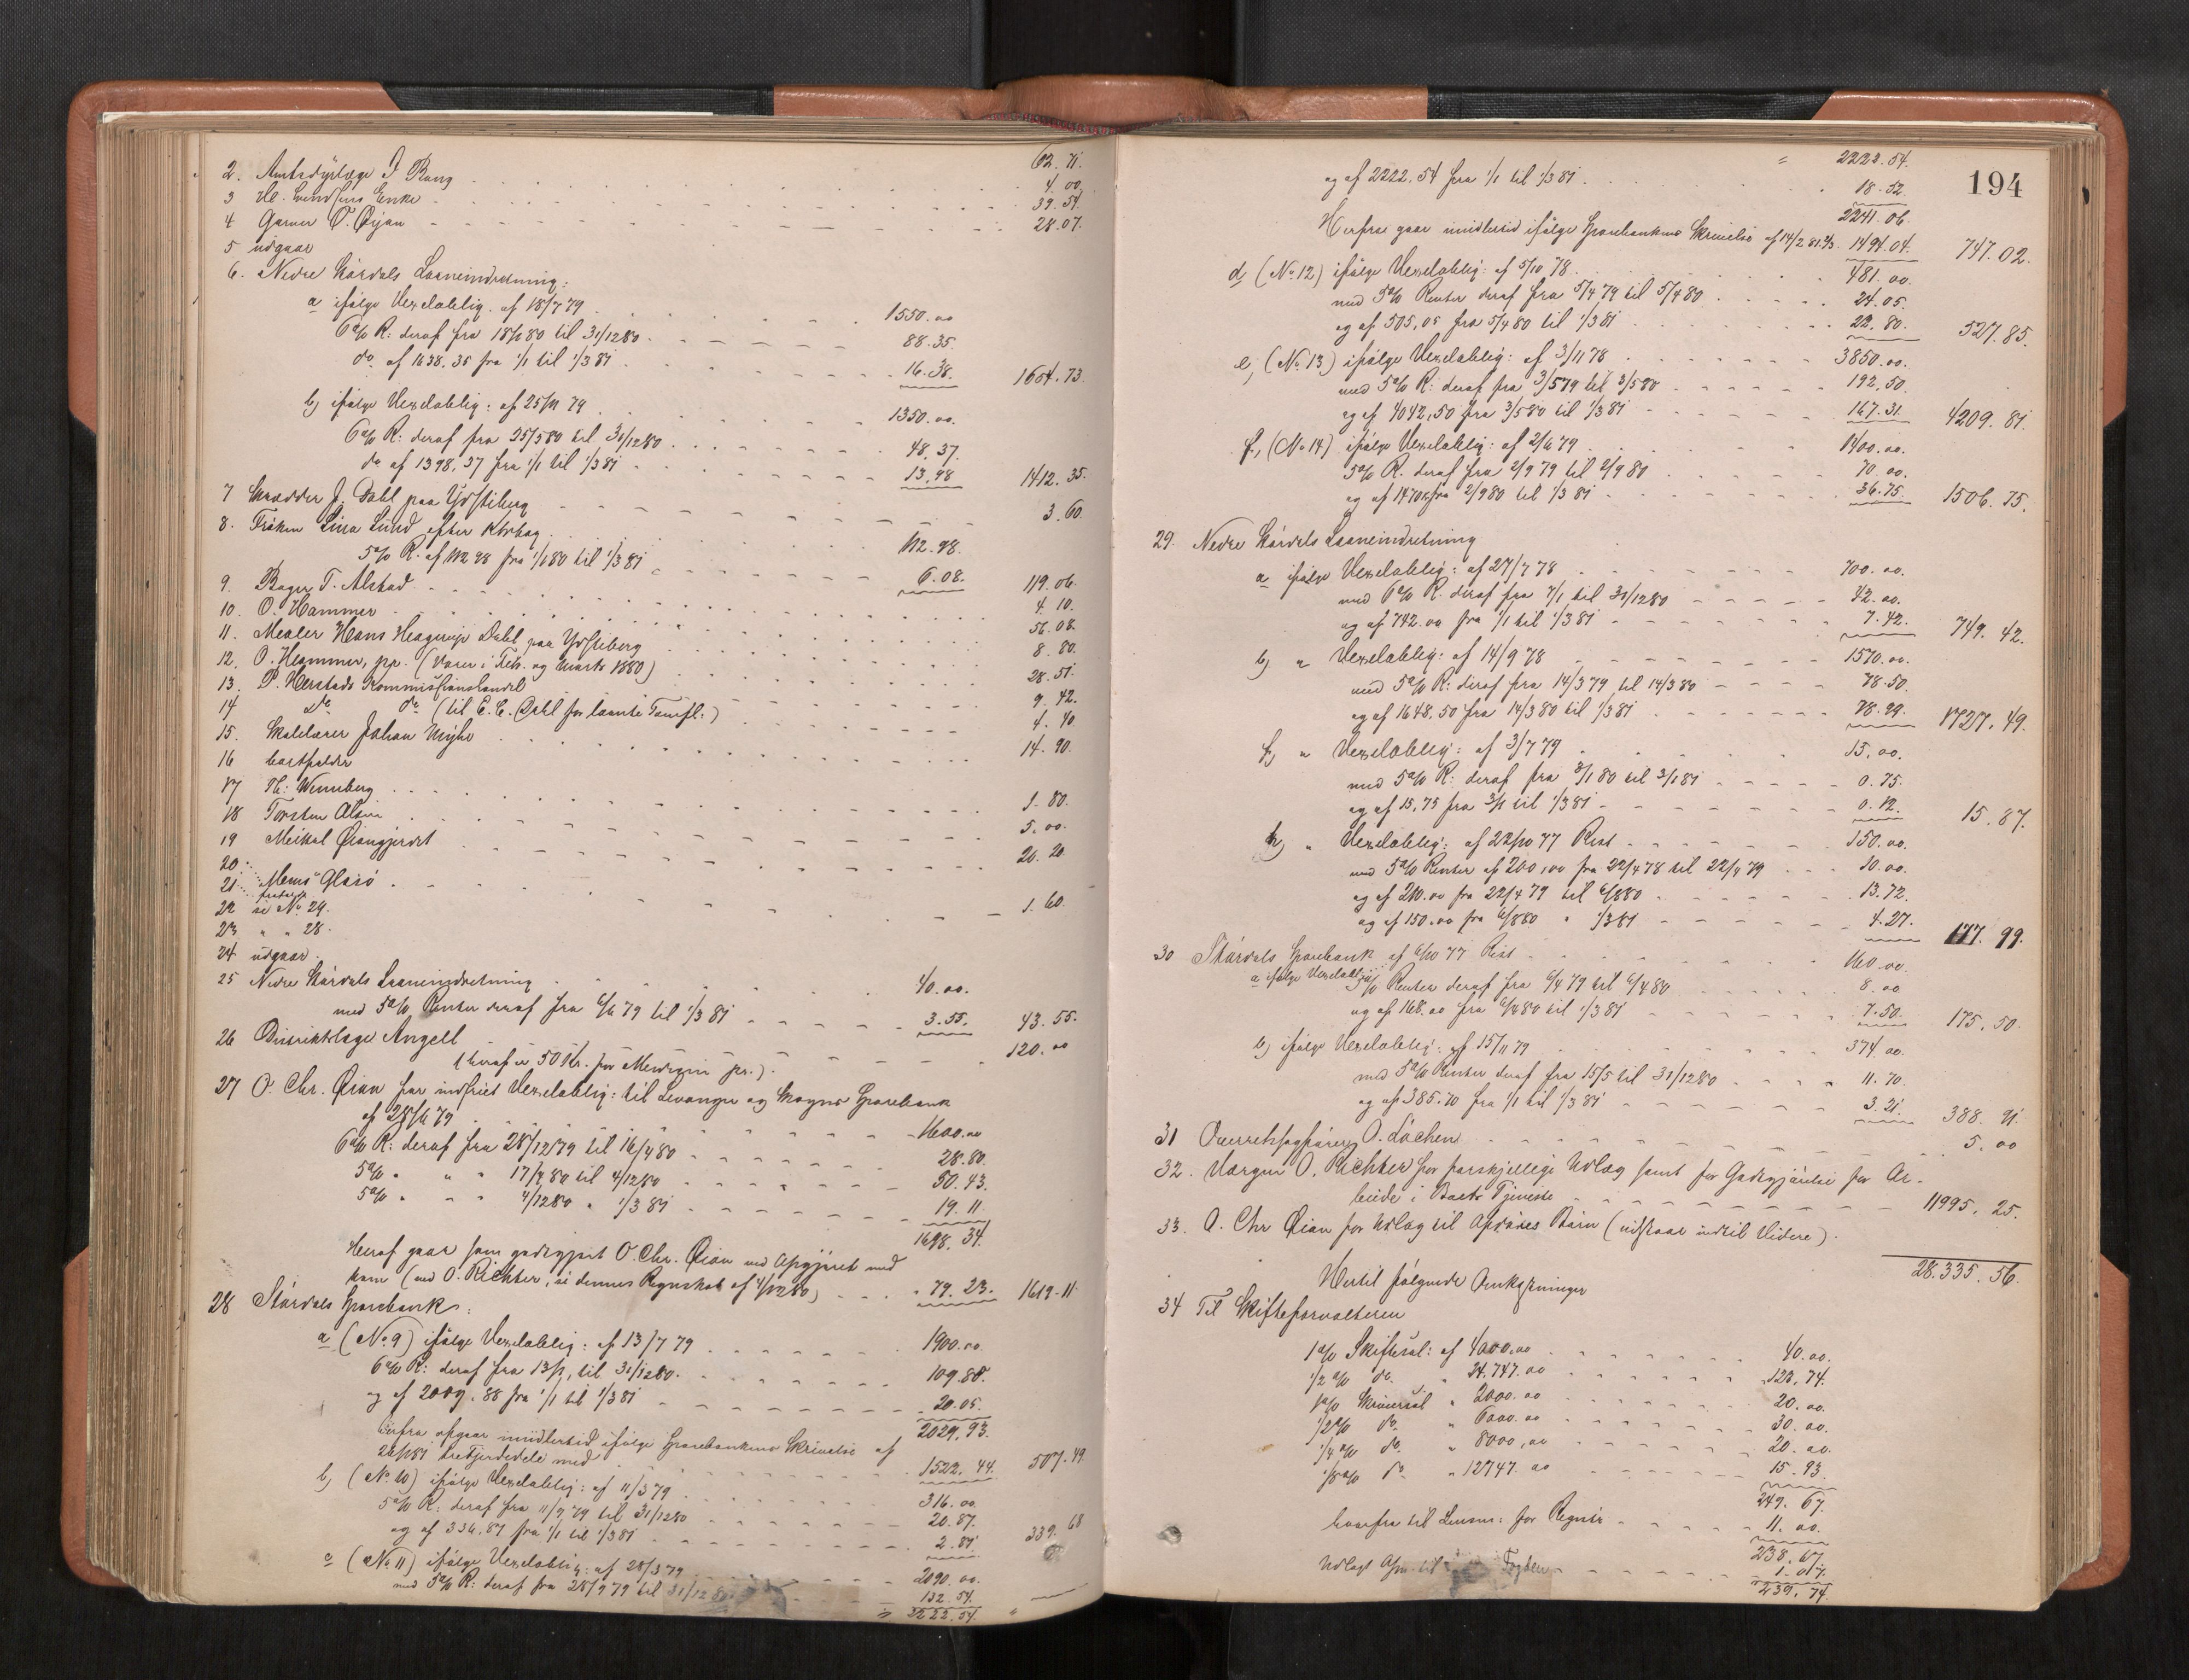 62.71.
2. Amtsdyrlæge I Bang 4.00.
3 Hl. Lundsens Enke 39.54.
4 Garver O. Øijan 28.07.
5 udgaar
6. Nedre Størdals Laaneindretning:
a ifølge Vexelobblig. af 18/7 79 1550.00
6% R: deraf fra 18/1 80 til 31/12 80 88.35.
do af 1638.35 fra 1/1 til 1/3 81 16.38. 1654.73.
b) ifølge Vexelobblig: af 25/11 79 1350.00.
6% R: deraf fra 25/5 80 til 31/12 80 48.37.
do af 1398.37 fra 1/1 til 1/3 81 13.98 1412.35.
7 Skrædder J. Dahl paa Ydstiberg 3.60.
8. Frøken Lina Lund efter Kbrbog 112.98.
5% R. af 112 98 fra 1/1 80 til 1/3 81 6.08. 119.06.
9. Bager T. Alstad 4.10.
10. O. Hammer 56.08.
11. Maaler Hans Heagerup Dahl paa Ydstiberg 8.80.
12. O. Hammer, pp. (Varer i Feb. og Marts 1880) 28.51.
13. P. Herstads Kommissionshandel 9.42.
14 do do (til E. C. Dahl for laante Tomfl:) 4.40.
15. Skolelærer Johan Myhr 14.90.
16 bortfalder
17 Th: Wenneberg 1.80.
18 Torsten Alsin 5.00.
19 Meikal Øiangjerdet 20.20.
20.
21 Mens Glasø 1.60.
22 se No 29.
23 " " 28.
24 udgaar.
25 Nedre Størdals Laaneindretning 40.00.
med 5% Renter deraf fra 6/6 79 til 1/3 81 3.55. 43.55.
26 Distriktslæge Angell 120.00
(heraf er 50 Kr. for Medicin pr.).
27 O. Chr. Øian for indfriet Vexelobblig: til Levanger og Skogns Sparebank
af 28/6 79 1600.00
6% R: deraf fra 28/12 79 til 16/4 80 28.80.
5% " " 17/4 80 til 4/12 80 50.43.
5% " " " 4/12 80 " 1/3 81 19.11.
1698.34.
Heraf gaar som godtgjort O. Chr. Øian ved Afgjøret med
ham (ved O. Richter, se dennes Regnskab af 4/12 80) 79.23. 1619.11
28 Størdals Sparebank:
a (No 9) ifølge Vexelobblig: af 13/7 79 1900.00
6% R: deraf fra 13/1, til 31/12 80. 109.88.
og af 2009.88 fra 1/1 til 1/3 81 20.05.
2029.93.
herfra afgaar imidlertid ifølge Sparebankens Skrivelse af
22/1 81 trefjerdedele med 1522.44. 507.49
b) (No 10) ifølge Vexelobblig: af 11/3 79 316.00
5% R: deraf fra 11/9 79 til 31/12 80 20.87.
og af 336.87 fra 1/1 til 1/3 81 2.81 339.68
c (No 11) ifølge Vexelobblig: af 28/3 79 2090.00.
med 5% R: deraf fra 28/9 79 til 31/12 80 132.54.
2222.54.
194
" 2222.54.
og af 2222.54 fra 1/1 til 1/3 81 18.52
2241.06.
Herfra gaar imidlertid ifølge Sparebankens Skrivelse af 14/2 81 2/3 1494.04. 747.02.
d (No 12) ifølge Vexelobblig: af 5/10 78 481.00.
med 5% Renter deraf fra 5/4 79 til 5/4 80 24.05.
og af 505,05 fra 5/4 80 til 1/3 81 22.80. 527.85.
e, (No 13) ifølge Vexelobblig: af 3/11 78 3850.00.
med 5% R: deraf fra 3/5 79 til 3/5 80 192.50.
og af 4042,50 fra 3/5 80 til 1/3 81 167.31. 4209.81.
f, (No 14) ifølge Vexelobblig: af 2/6 79 1400.00.
5% R. deraf fra 2/9 79 til 2/9 80 70.00.
og af 1470 fra 2/9 80 til 1/3 81 36.75. 1506.75.
29. Nedre Størdals Laaneindretning
a ifølge Vexelobblig: af 27/7 78 700.00.
med 6% R. deraf fra 1/1 til 31/12 80 42.00.
og af 742.00 fra 1/1 til 1/3 81 7.42. 749.42.
b) " Vexelobblig: af 14/9 78 1570.00.
med 5% R: deraf fra 14/3 79 til 14/3 80 78.50.
og af 1648,50 fra 14/3 80 til 1/3 81 78.99. 1727.49.
f) " Vexelobblig: af 3/7 79 15.00.
med 5% R: deraf fra 3/1 80 til 3/1 81 0.75.
og af 15,75 fra 3/1 til 1/3 81 0.12. 15.87.
h) " Vexelobblig: af 22/10 77 Rest 150.00.
med 5% Renter af 200,00 fra 22/4 78 til 22/4 79 10.00.
og af 210.00 fra 22/4 79 til 6/8 80 13.72.
og af 150.00 fra 6/8 80 " 1/3 81 4.27. 177.99.
30 Størdals Sparebank af 6/10 77 Rest 160.00.
a ifølge Vexelobblig: 5% Renter deraf fra 6/4 79 til 6/4 80 8.00
og af 168.00 fra 6/4 80 til 1/3 81 7.50. 175.50.
b) ifølge Vexelobblig: af 15/11 79 374.00.
med 5% Renter deraf fra 15/5 til 31/12 80 11.70.
og af 385.70 fra 1/1 til 1/3 81 3.21. 388.91.
31 Overretssagfører O. Løchen 5.00
32. Værgen O. Richter for forskjellige Udlæg samt for Godtgjørelse for Ar-
beide i Boets Tjeneste 11995.25.
33. O. Chr Øian for Udlæg til Afdødes Børn (udstaar indtil Videre).
28.335.56.
Hertil følgende Omkostninger
34 Til Skifteforvalteren
1% Skiftesal: af 4000.00 40.00.
1/2% do. " 24,747.00 123.74.
1% Skriversal " 2000.00 20.00.
1/2% do " 6000.00 30.00.
1/4% do " 8000,00 20.00.
1/8% do " 12747.00 15.93.
249.67
herfra til Lensm: for Registr. 11.00.
238.67.
Udlagt til Fogden 1.07.
239.74.